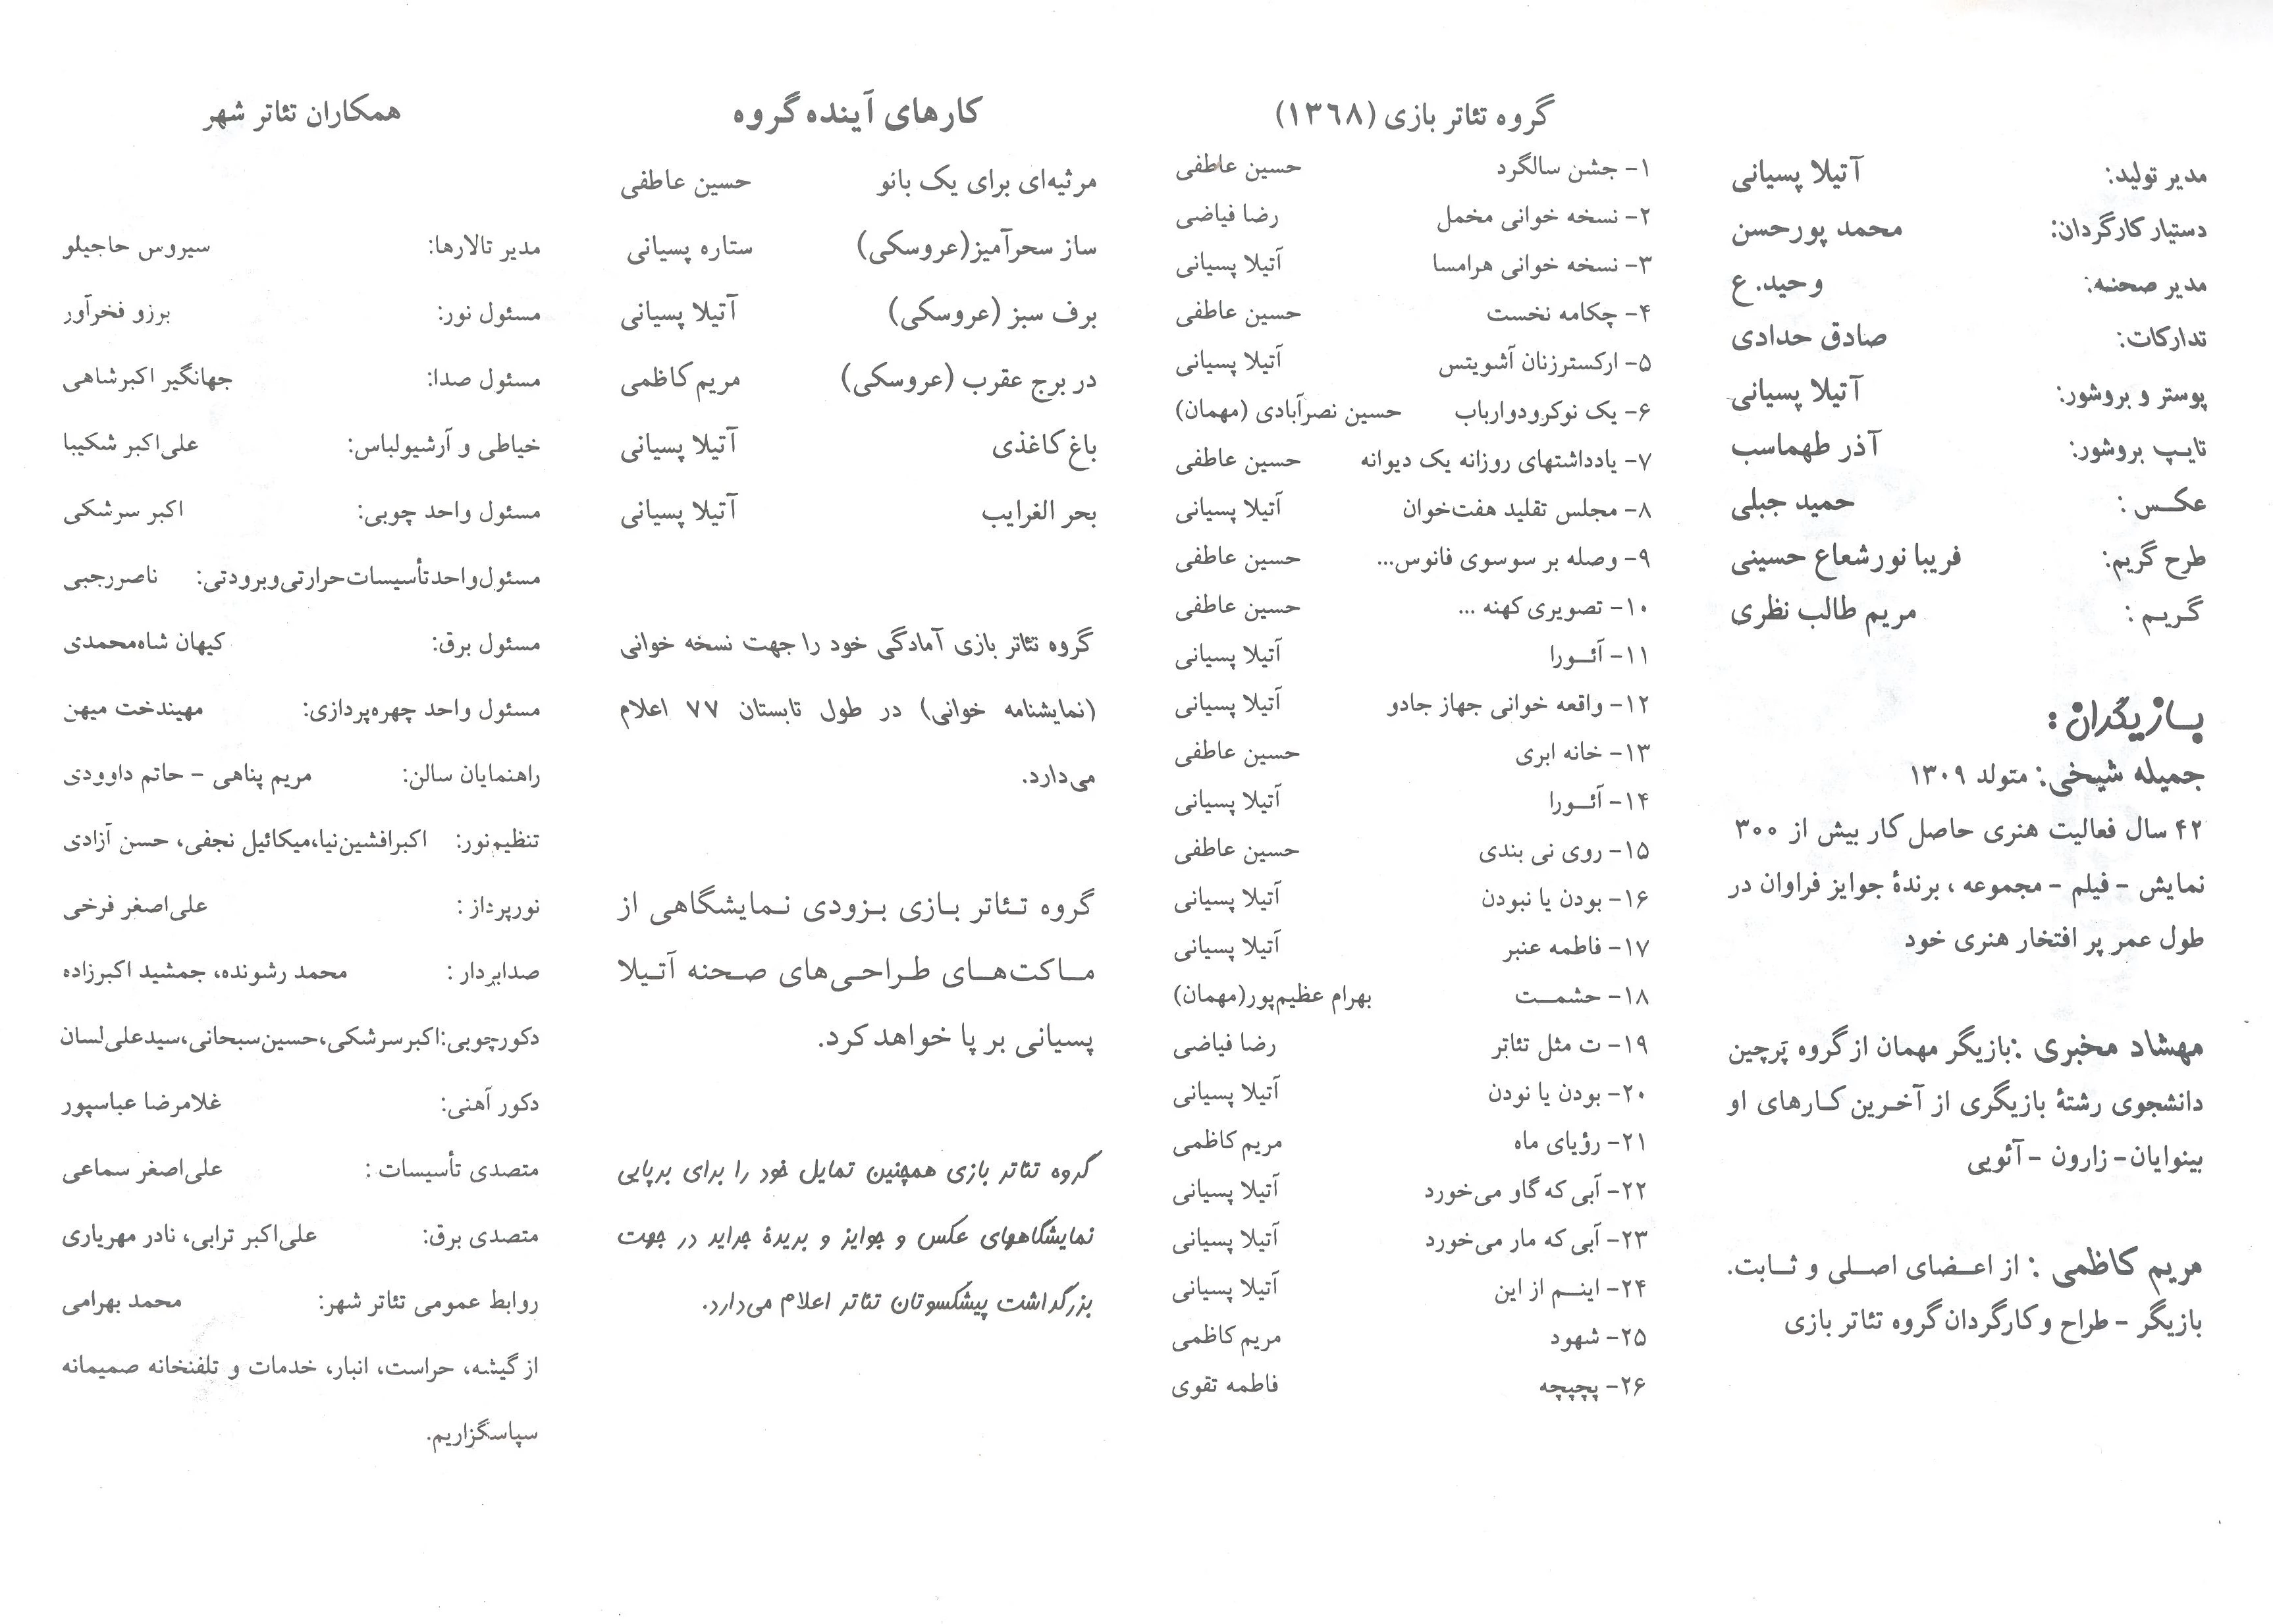 مدیر تولید: آتیلا پسیانی
دستیار کارگردان: محمد پورحسن
مدیر صحنه: وحید. ع
تدارکات: صادق حدادی
پوستر و بروشور: آتیلا پسیانی
تایپ بروشور: آذر طهماسب
عکس : حمید جبلی
طرح گریم: فریبا نورشعاع حسینی
گریم : مریم طالب نظری
بازیگران :
جمیله شیخی: متولد ۱۳۰۹
۴۲ سال فعالیت هنری حاصل کار بیش از ۳۰۰
نمایش - فیلم - مجموعه ، برندهٔ جوایز فراوان در
طول عمر پر افتخار هنری خود
مهشاد مخبری :بازیگر مهمان از گروه پَرچین
دانشجوی رشتهٔ بازیگری از آخرین کارهای او
بینوایان- زارون - آئویی
مریم کاظمی : از اعضای اصلی و ثابت.
بازیگر - طراح و کارگردان گروه تئاتر بازی
گروه تئاتر بازی (۱۳۶۸)
۱- جشن سالگرد حسین عاطفی
۲- نسخه خوانی مخمل رضا فیاضی
۳- نسخه خوانی هرامسا آتیلا پسیانی
۴- چکامه نخست حسین عاطفی
۵- ارکستر زنان آشویتس آتیلا پسیانی
۶- یک نوکر و دو ارباب حسین نصرآبادی (مهمان)
۷- یادداشتهای روزانه یک دیوانه حسین عاطفی
۸- مجلس تقلید هفت‌خوان آتیلا پسیانی
۹- وصله بر سوسوی فانوس... حسین عاطفی
۱۰- تصویری کهنه ... حسین عاطفی
۱۱- آئورا آتیلا پسیانی
۱۲- واقعه خوانی جهاز جادو آتیلا پسیانی
۱۳- خانه ابری حسین عاطفی
۱۴- آئورا آتیلا پسیانی
۱۵- روی نی بندی حسین عاطفی
۱۶- بودن یا نبودن آتیلا پسیانی
۱۷- فاطمه عنبر آتیلا پسیانی
۱۸- حشمت بهرام عظیم‌پور(مهمان)
۱۹- ت مثل تئاتر رضا فیاضی
۲۰- بودن یا نودن آتیلا پسیانی
۲۱- رؤیای ماه مریم کاظمی
۲۲- آبی که گاو می‌خورد آتیلا پسیانی
۲۳- آبی که مار می‌خورد آتیلا پسیانی
۲۴- اینم از این آتیلا پسیانی
۲۵- شهود مریم کاظمی
۲۶- پچپچه فاطمه تقوی
کارهای آینده گروه
مرثیه‌ای برای یک بانو حسین عاطفی
ساز سحرآمیز(عروسکی) ستاره پسیانی
برف سبز (عروسکی) آتیلا پسیانی
در برج عقرب (عروسکی) مریم کاظمی
باغ کاغذی آتیلا پسیانی
بحر الغرایب آتیلا پسیانی
گروه تئاتر بازی آمادگی خود را جهت نسخه خوانی
(نمایشنامه خوانی) در طول تابستان ۷۷ اعلام
می‌دارد.
گروه تئاتر بازی بزودی نمایشگاهی از
ماکت‌های طراحی‌های صحنه آتیلا
پسیانی بر پا خواهد کرد.
گروه تئاتر بازی همچنین تمایل خود را برای برپایی
نمایشگاههای عکس و جوایز و بریدهٔ جراید در جهت
بزرگداشت پیشکسوتان تئاتر اعلام می‌دارد.
همکاران تئاتر شهر
مدیر تالارها: سیروس حاجیلو
مسئول نور: برزو فخرآور
مسئول صدا: جهانگیر اکبرشاهی
خیاطی و آرشیولباس: علی‌اکبر شکیبا
مسئول واحد چوبی: اکبر سرشکی
مسئول‌واحدتأسیسات‌حرارتی‌وبرودتی: ناصررجبی
مسئول برق: کیهان شاه‌محمدی
مسئول واحد چهره‌پردازی: مهیندخت میهن
راهنمایان سالن: مریم پناهی - حاتم داوودی
تنظیم‌نور: اکبرافشین‌نیا،میکائیل نجفی، حسن آزادی
نورپرداز : علی‌اصغر فرخی
صدابردار : محمد رشونده، جمشید اکبرزاده
دکورچوبی:اکبرسرشکی،حسین‌سبحانی،سیدعلی‌لسان
دکور آهنی: غلامرضا عباسپور
متصدی تأسیسات : علی‌اصغر سماعی
متصدی برق: علی‌اکبر ترابی، نادر مهریاری
روابط عمومی تئاتر شهر: محمد بهرامی
از گیشه، حراست، انبار، خدمات و تلفنخانه صمیمانه
سپاسگزاریم.